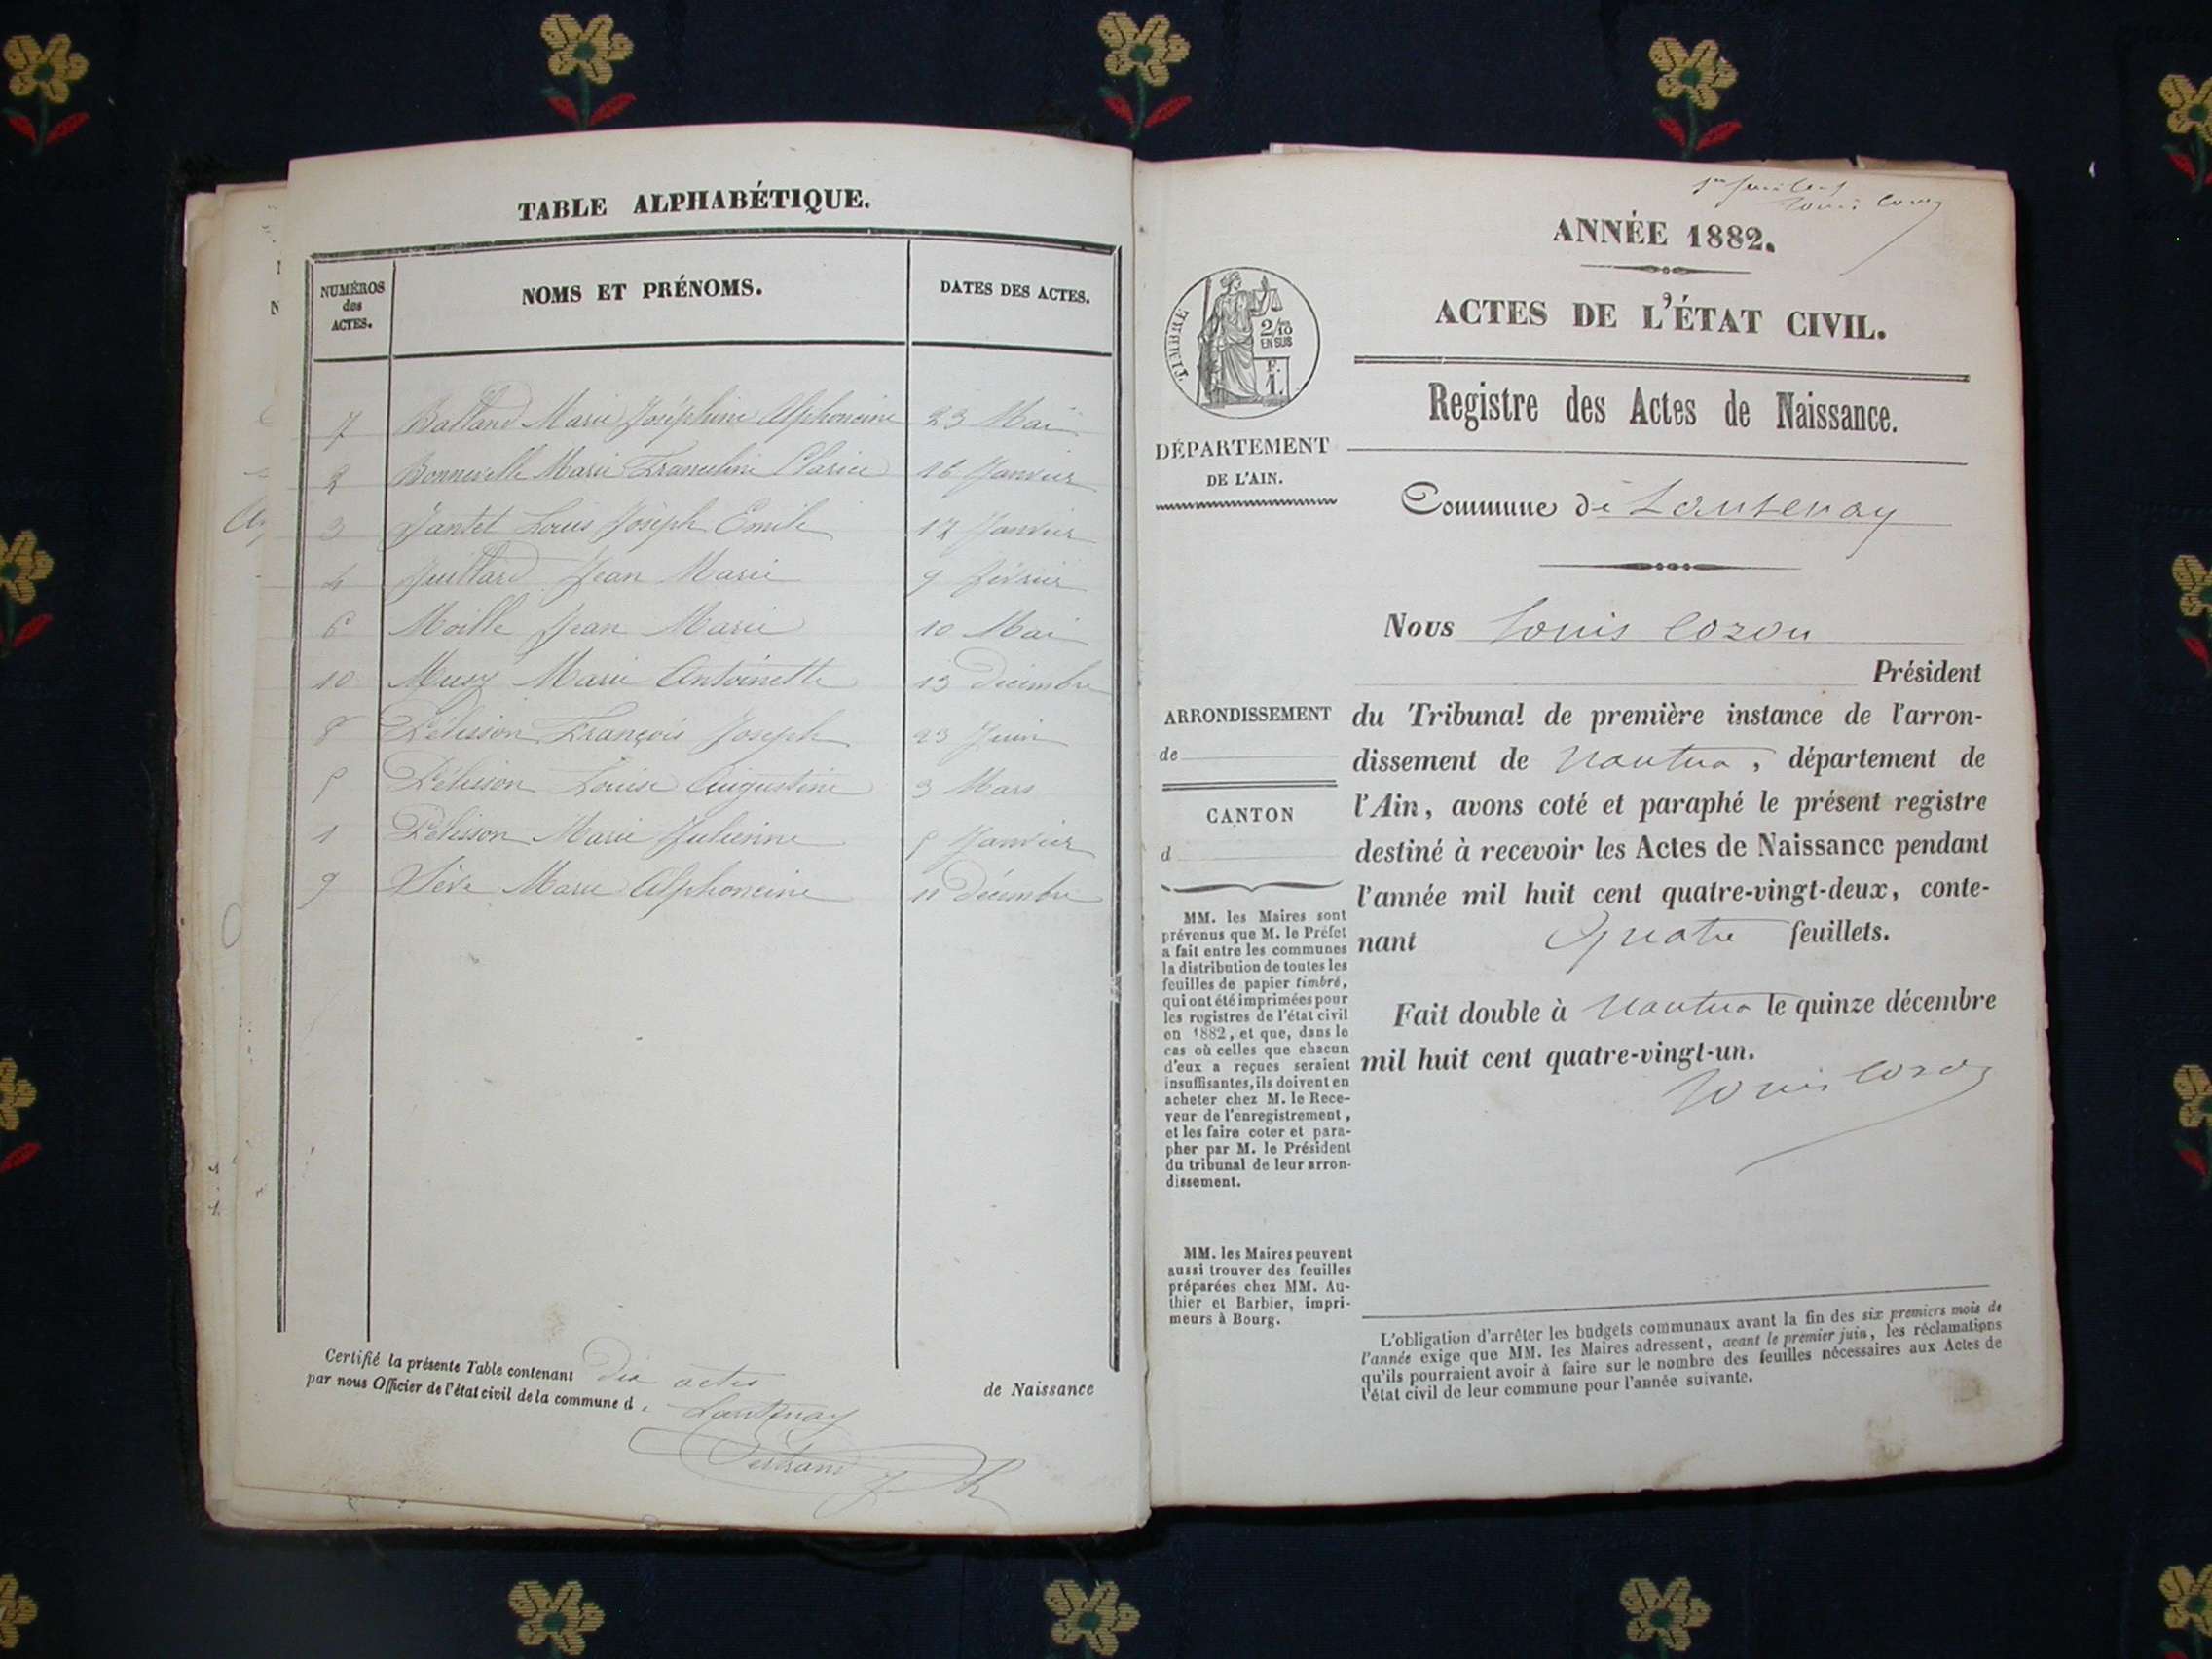 TABLE ALPHABÉTIQUE.
NUMÉROS
des
ACTES.
NOMS ET PRÉNOMS.
DATES DES ACTES.
7 Balland Marie Joséphine Alphoncine 23 Mai
2 Bonneville Marie Franceline Clarice 16 Janvier
3 Jantet Louis Joseph Emile 17 Janvier
4 Juillard Jean Marie 9 février
6 Moille Jean Marie 10 Mai
10 Musy Marie Antoinette 13 Décembre
8 Pélisson François Joseph 23 Juin
5 Pélisson Louise Augustine 3 Mars
1 Pélisson Marie Julienne 5 Janvier
9 Sève Marie Alphoncine 11 Décembre
Certifié la présente Table contenant Dix actes de Naissance
par nous Officier de l'état civil de la commune de Lantenay
Louis Cozon
ANNÉE 1882.
ACTES DE L'ÉTAT CIVIL.
TIMBRE
2/10
EN SUS
F.
1.
Registre des Actes de Naissance.
DÉPARTEMENT
DE L'AIN.
Commune de Lantenay
Nous Louis Cozon
Président
ARRONDISSEMENT
de
CANTON
d
du Tribunal de première instance de l'arron-
dissement de Nantua, département de
l'Ain, avons coté et paraphé le présent registre
destiné à recevoir les Actes de Naissance pendant
l'année mil huit cent quatre-vingt-deux, conte-
nant Quatre feuillets.
Fait double à Nantua le quinze décembre
mil huit cent quatre-vingt-un.
Louis Cozon
MM. les Maires sont
prévenus que M. le Préfet
a fait entre les communes
la distribution de toutes les
feuilles de papier timbré,
qui ont été imprimées pour
les registres de l'état civil
en 1882, et que, dans le
cas où celles que chacun
d'eux a reçues seraient
insuffisantes, ils doivent en
acheter chez M. le Rece-
veur de l'enregistrement,
et les faire coter et para-
pher par M. le Président
du tribunal de leur arron-
dissement.
MM. les Maires peuvent
aussi trouver des feuilles
préparées chez MM. Au-
thier et Barbier, impri-
meurs à Bourg.
L'obligation d'arrêter les budgets communaux avant la fin des six premiers mois de
l'année exige que MM. les Maires adressent, avant le premier juin, les réclamations
qu'ils pourraient avoir à faire sur le nombre des feuilles nécessaires aux Actes de
l'état civil de leur commune pour l'année suivante.